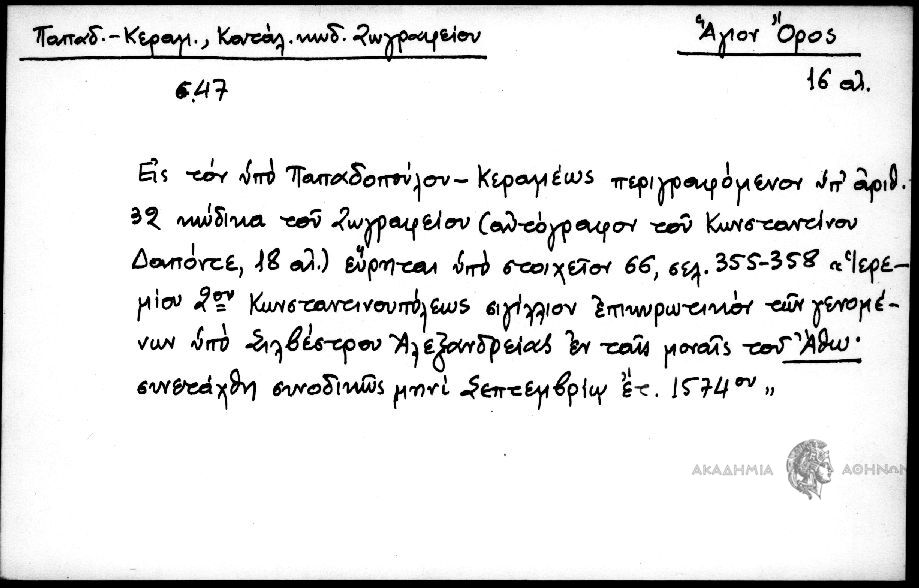 Παπαδ.-Κεραμ., Κατάλ. κωδ. Ζωγραφείου
Ἅγιον Ὄρος
σ.47
16 αἰ.
Εἰς τὸν ὑπὸ Παπαδοπούλου-Κεραμέως περιγραφόμενον ὑπ' ἀριθ.
32 κώδικα τοῦ Ζωγραφείου (αὐτόγραφον τοῦ Κωνσταντίνου
Δαπόντε, 18 αἰ.) εὕρηται ὑπὸ στοιχεῖον 66, σελ. 355-358 «Ἱερε-
μίου 2ου Κωνσταντινουπόλεως σιγίλλιον ἐπικυρωτικὸν τῶν γενομέ-
νων ὑπὸ Σιλβέστρου Ἀλεξανδρείας ἐν ταῖς μοναῖς τοῦ Ἄθω·
συνετάχθη συνοδικῶς μηνὶ Σεπτεμβρίῳ ἔτ. 1574ου»
ΑΚΑΔΗΜΙΑ ΑΘΗΝΩΝ